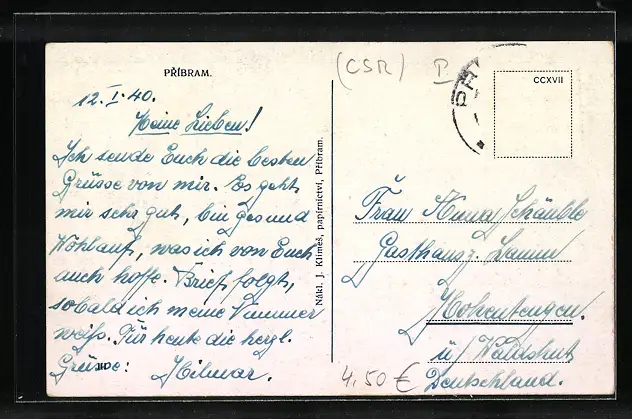 PŘÍBRAM.
12.I.40.
Meine Lieben!
Ich sende Euch die besten
Grüsse von mir. Es geht
mir sehr gut, bin gesund
Wohlauf, was ich von Euch
auch hoffe. Brief folgt,
sobald ich meine Nummer
weiß. Für heute die herzl.
Grüsse: Hilmar.
Nákl. J. Klimeš, papírnictví, Příbram.
(CSR) P
CCXVII
PR
Frau Schäuble
Gasthaus z. Lamm
Hohentengen.
ü/ Waldshut
Deutschland.
4,50 €